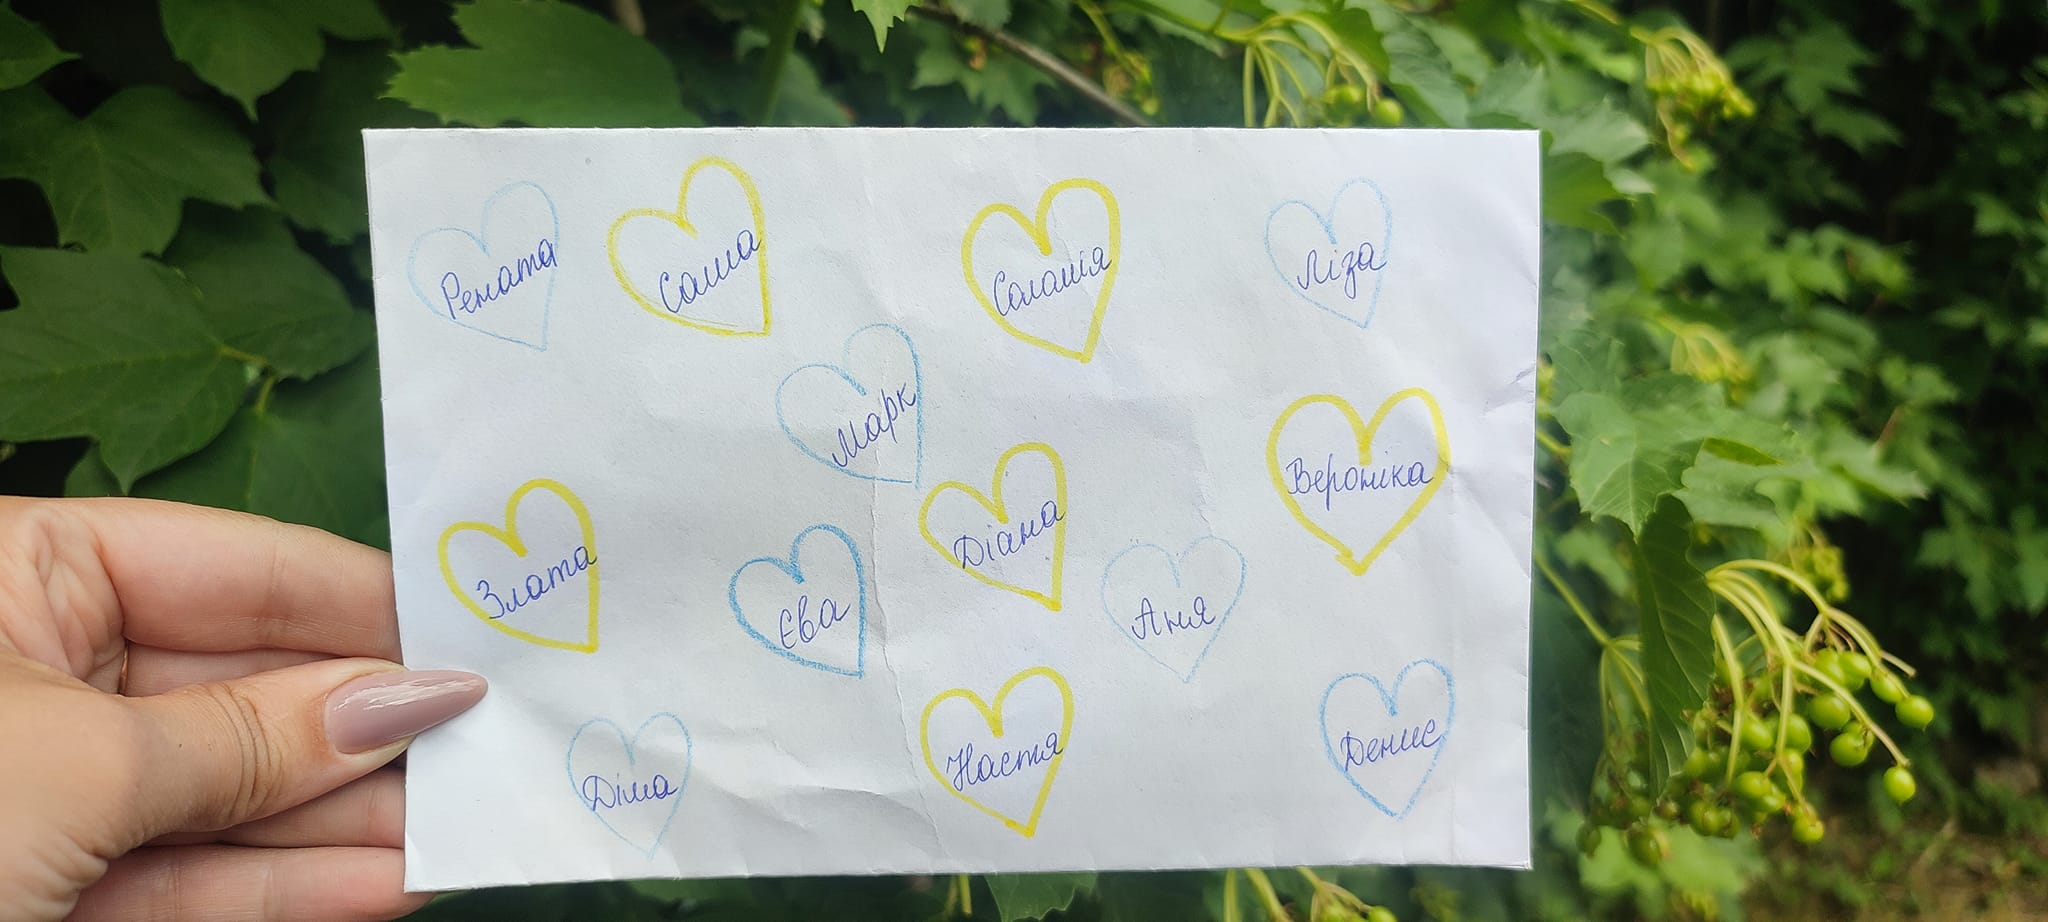 Рената
Саша
Соломія
Ліза
Марк
Вероніка
Злата
Єва
Діана
Аня
Діма
Настя
Денис